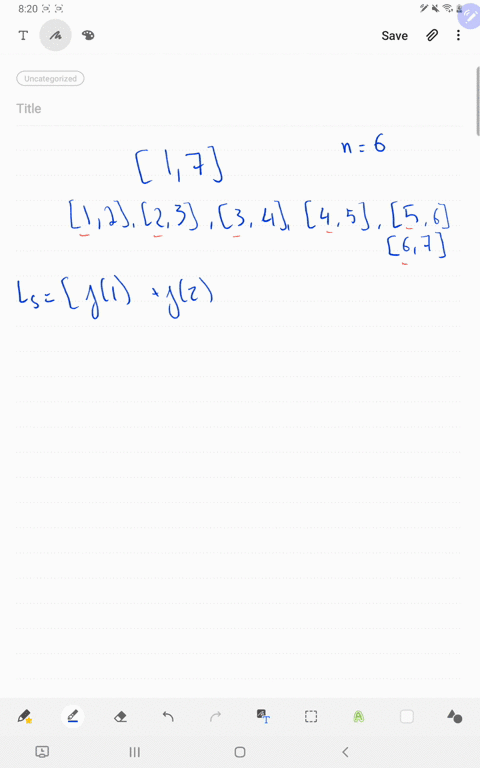 8:20
T
Save
Uncategorized
Title
n = 6
[1,7]
[1,2], [2,3], [3,4], [4,5], [5,6]
[6,7]
L₅ = [f(1) + f(2)
T
A